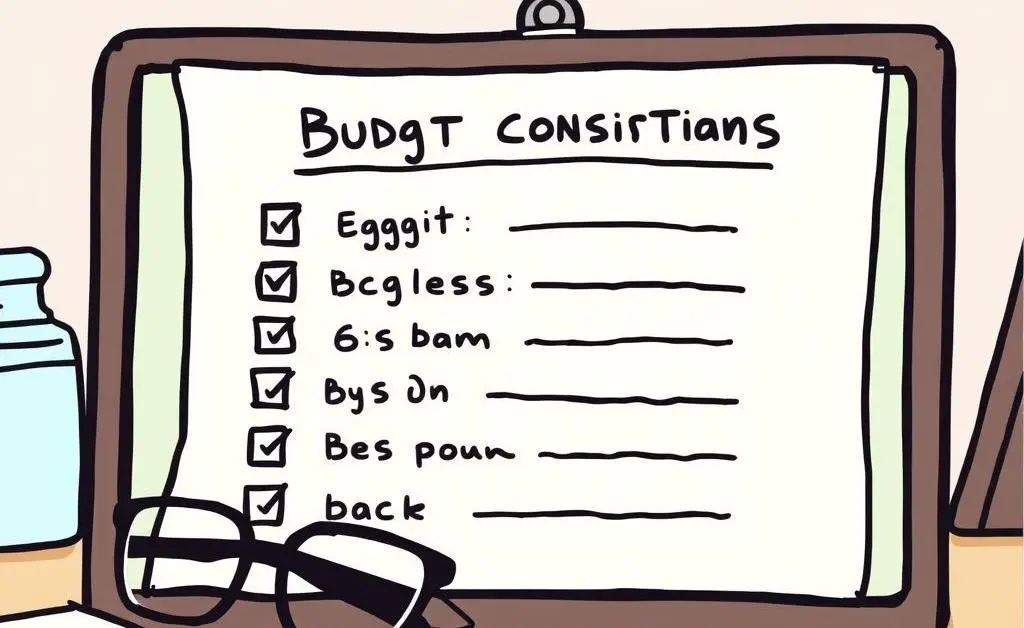 BUDgT CONSirTians
Egggit:
Bcgless:
6:s bam
Bys On
Bes poun
back